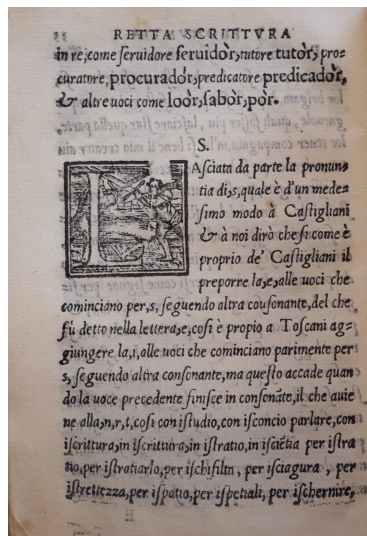 RETTA SCRITTVRA
in re, come ſeruidore ſeruidòr, tutore tutòr, pro-
curatore, procuradór, predicatore predicadór,
& altre uoci come loòr, ſabòr, pòr.
S.
LAſciata da parte la pronun-
tia di, s, quale è d'un mede-
ſimo modo à Caſtigliani
& à noi dirò che ſi come è
proprio de' Caſtigliani il
preporre la, e, alle uoci che
cominciano per, s, ſeguendo altra couſonante, del che
fù detto nella lettera, e, coſi è propio a Toſcani ag-
giungere la, i, alle uoci che cominciano parimente per
s, ſeguendo altra conſonante, ma queſto accade quan
do la uoce precedente finiſce in conſonāte, il che auie
ne alla, n, r, t, coſi con iſtudio, con iſconcio parlare, con
iſcrittura, in iſcrittura, in iſtratio, in iſciētia per iſtra
tio, per iſtratiarlo, per iſchifilta, per iſciagura, per
iſtrettezza, per iſpatio, per iſpetiali, per iſchernire,